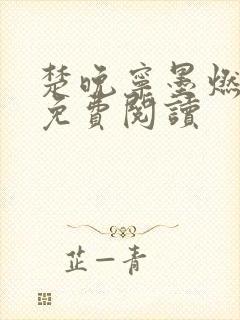 楚晚寧墨燃
免費閱讀
芷一青